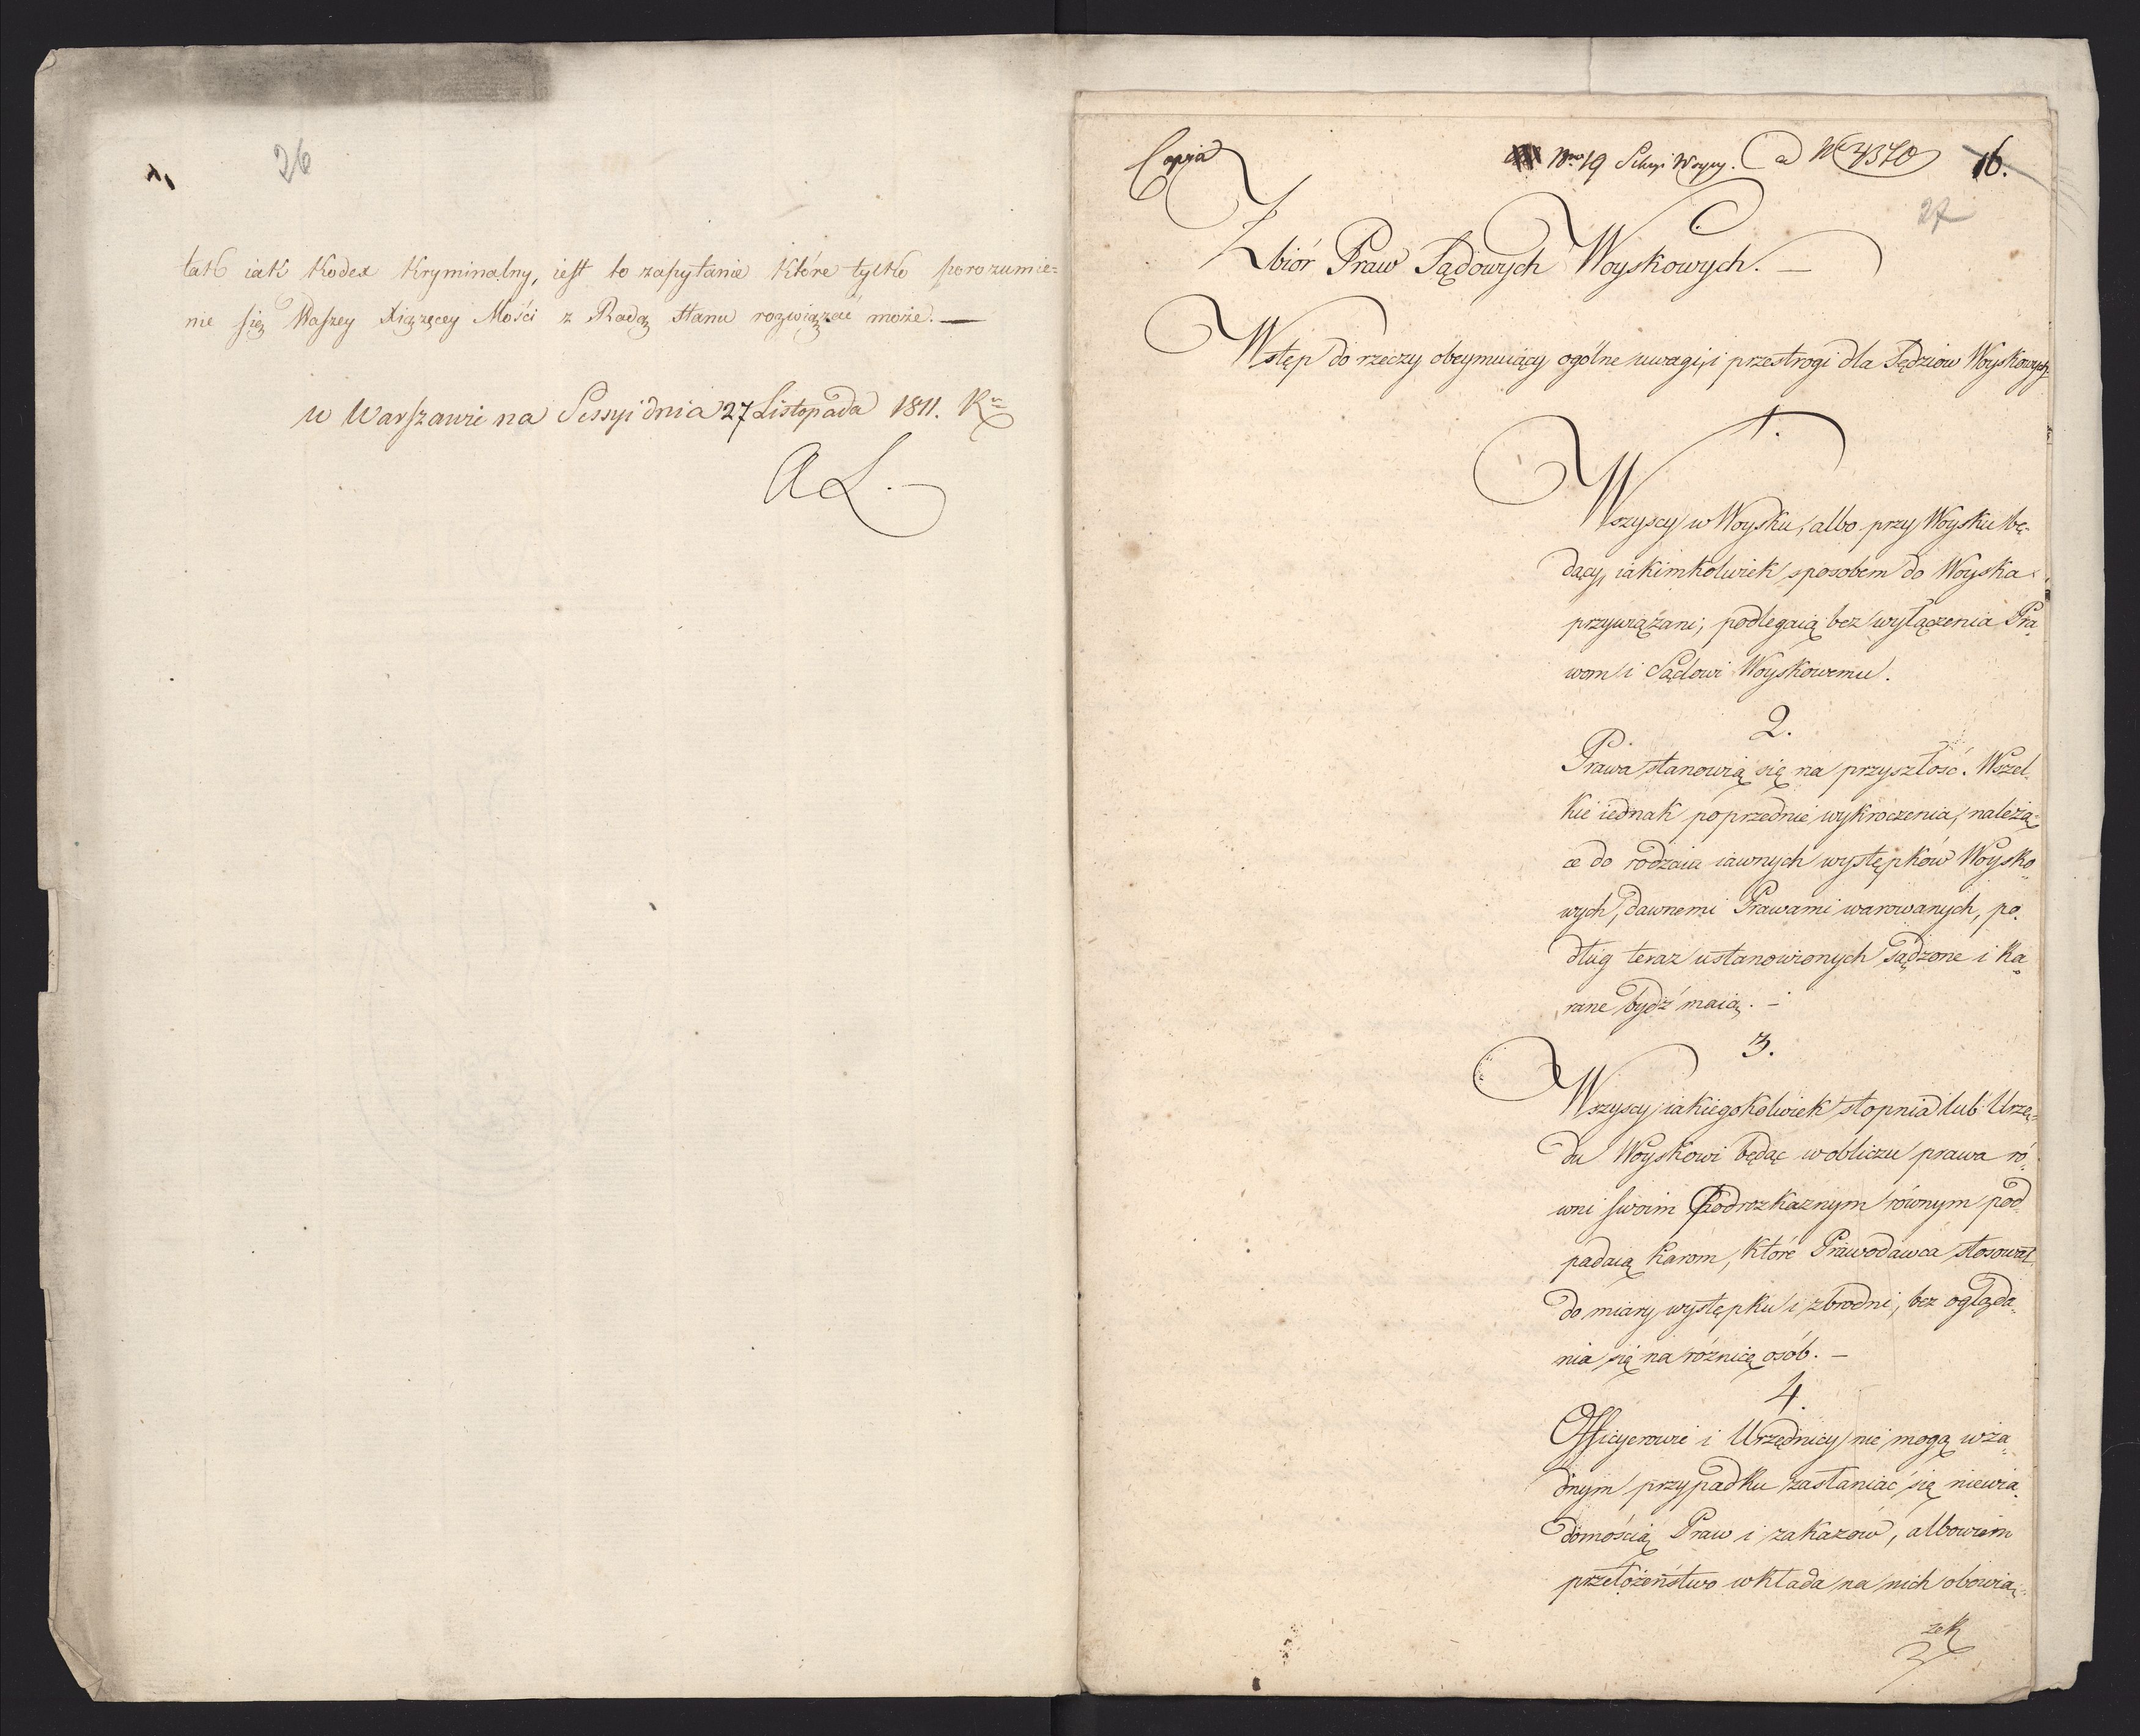 26
tak iak Kodex Kryminalny, iest to zapytanie które tylko porozumie-
nie się Waszey Xiążęcey Mości z Radą Stanu rozwiązać może. —
w Warszawie na Sessyi dnia 27 Listopada 1811. R
A L. —
Copia
Nro 19 Sekcyi Woyny. ad Nr 4370 16.
27
Zbiór Praw Sądowych Woyskowych. —
Wstęp do rzeczy obeymuiący ogólne uwagi, i przestrogi dla Sędziow Woyskowych
1.
Wszyscy w Woysku, albo przy Woysku bę-
dący, iakimkolwiek sposobem do Woyska
przywiązani; podlegaią bez wyłączenia Pra
wom i Sądowi Woyskowemu.
2.
Prawa stanowią się na przyszłość. Wszel-
kie iednak poprzednie wykroczenia, należą-
ce do rodzaiu iawnych występków Woysko-
wych, dawnemi Prawami warowanych, po-
dług teraz ustanowionych sądzone i ka-
rane bydź maią. —
3.
Wszyscy iakiegokolwiek stopnia lub Urzę-
du Woyskowi będąc w obliczu prawa ró-
wni swoim Podrozkaznym równym pod
padaią karom, które Prawodawca stosował
do miary występku i zbrodni, bez ogląda-
nia się na róznicę osób. —
4.
Officyerowie i Urzędnicy nie mogą w ża-
dnym przypadku zasłaniać się niewia-
domością Praw i zakazow, albowiem
przełożeństwo wkłada na nich obowią-
zek